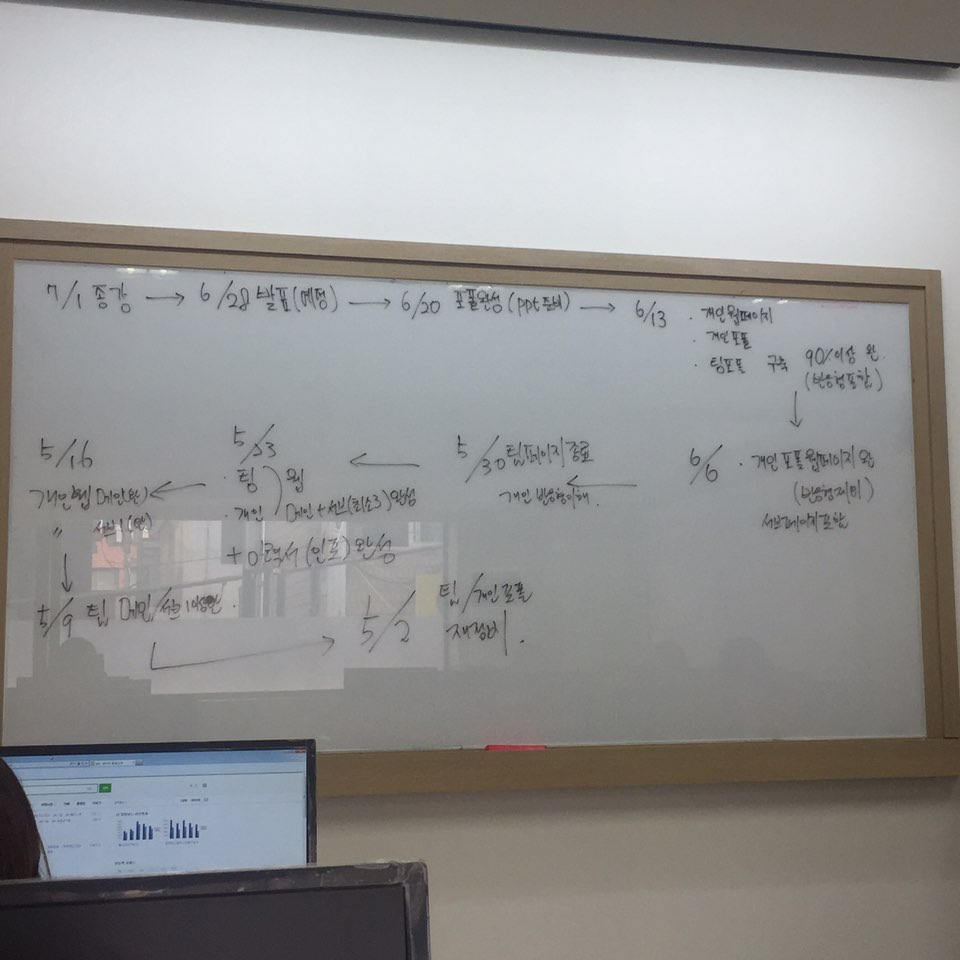 7/1 종강 → 6/28 발표(예정) → 6/20 포폴완성(ppt 준비) → 6/13 · 개인웹페이지
· 개인포폴
· 팀포폴 구축 90%이상 완.
(반응형포함)
6/6 · 개인포폴웹페이지완
(반응형재비)
서브페이지포함
5/30 팀페이지종료
개인 반응형이해.
5/23
· 팀
· 개인
웹
메인+서브(최소3)완성
+이력서(인포)완성
5/16
개인웹(메인완)
〃 서브1(완)
5/9 팀 메인/서브1이상완.
5/2 팀/개인포폴
재정비.